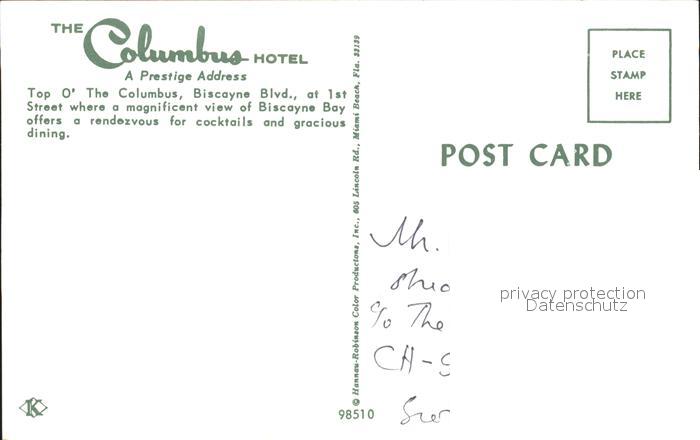 THE Columbus HOTEL
A Prestige Address
Top O' The Columbus, Biscayne Blvd., at 1st
Street where a magnificent view of Biscayne Bay
offers a rendezvous for cocktails and gracious
dining.
© Hannau-Robinson Color Productions, Inc., 605 Lincoln Rd., Miami Beach, Fla. 33139
PLACE
STAMP
HERE
POST CARD
Mr.
c/o The
CH-
privacy protection
Datenschutz
98510
K